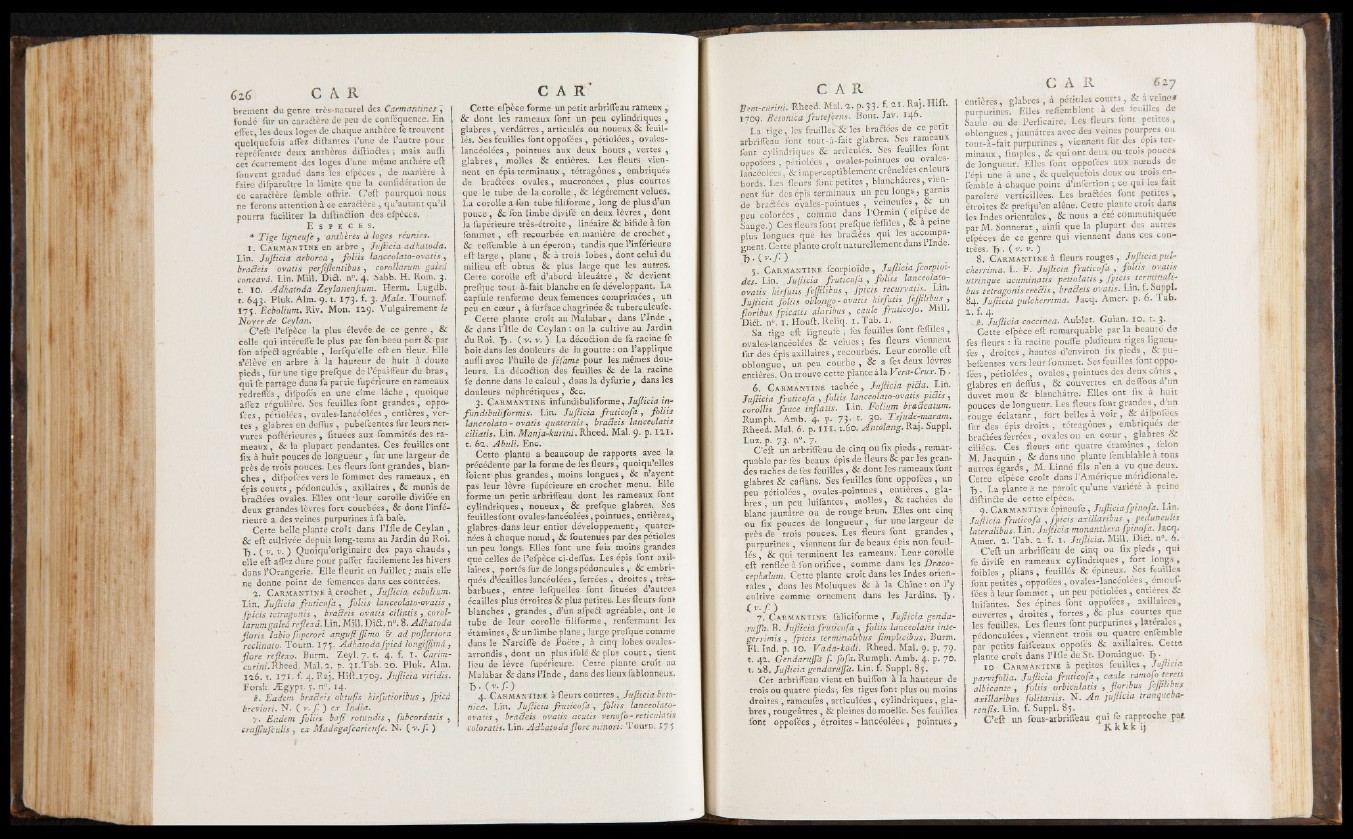 626 C A R
brement du genre très-naturel des Carmantines,
fondé sur un caractère de peu de conséquence. En
effet, les deux loges de chaque anthère se trouvent
quelquefois assez distantes l'une de l'autre pour
représenter deux anthères distinctes; mais aussi
cet écartement des loges d'une même anthère est
souvent gradué dans les espèces, de manière à
faire disparoître la limite que la considération de
ce caractère semble offrir. C'est pourquoi nous
ne ferons attention à ce caractère, qu'autant qu'il
pourra faciliter la distinction des espèces.
E S P E C E S.
* Tige ligneuse, anthères à loges réunies.
1. CARMANTINE en arbre, Justicia adhatoda.
Lin. Justicia arborea, foliis lanceolato-ovatis,
bracteis ovatis persistentibus, corollarum galeâ
concavâ. Lin. Mill. Dict. n°. 4. Sabb. H. Rom. 3.
t. 10. Adhatoda Zeylanensium. Herm. Lugdb.
t. 643. Pluk. Alm. 9. t. 173. f. 3. Mala. Tournef.
175. Ecbolium. Riv. Mon. 129. Vulgairement le
Noyer de Ceylan.
C'est l'espèce la plus élevée de ce genre, &
celle qui intéresse le plus par son beau port & par
son aspect agréable, lorsqu'elle est en fleur. Elle
s'élève en arbre à la hauteur de huit à douze
pieds, sur une tige presque de l'épaisseur du bras,
qui se partage dans sa partie supérieure en rameaux
redressés, disposés en une cîme lâche, quoique
assez régulière. Ses feuilles sont grandes, oppo-
sées, pétiolées, ovales-lancéolées, entières, ver-
tes, glabres en dessus, pubescentes sur leurs ner-
vures postérieures, situées aux sommités des ra-
meaux, & la plupart pendantes. Ces feuilles ont
six à huit pouces de longueur, sur une largeur de
près de trois pouces. Les fleurs sont grandes, blan-
ches, disposées vers le sommet des rameaux, en
épis courts, pédonculés, axillaires, & munis de
bractées ovales. Elles ont leur corolle divisée en
deux grandes lèvres fort courbées, & dont l'infé-
rieure a des veines purpurines à sa base.
Cette belle plante croît dans l'Isle de Ceylan,
& est cultivée depuis long-tems au Jardin du Roi.
♄. (v. v.) Quoiqu'originaire des pays chauds,
elle est assez dure pour passer facilement les hivers
dans l'Orangerie. Elle fleurit en Juillet; mais elle
ne donne point de semences dans ces contrées.
2. CARMANTINE à crochet, Justicia ecbolium.
Lin. Justicia fruticosa, foliis lanceolato-ovatis,
spicis tetragonis, bracteis ovatis ciliatis, corol-
larum galeâ reflexâ. Lin. Mill. Dict. n°. 8. Adhatoda
floris labio superore angustissimo & ad posteriora
reclinato. Tourn. 175. Adhatoda spicâ longissimâ,
flore reflexo. Burm. Zeyl. 7. t. 4. f. 1. Carim-
curini. Rheed. Mal. 2. p. 31. Tab. 20. Pluk. Alm.
126. t. 171. f. 4. Raj. Hist. 1709. Justicia viridis.
Forsk. Ægypt. 5. n°. 14.
β. Eadem bracteis obtusis hirsutioribus, spicâ
breviori. N. (v. s.) ex India.
γ. Eadem foliis basi rotundis, subcordatis,
crassiusculis, ex Madagascariense. N. (v. s.)
C A R
Cette espèce forme un petit arbrisseau rameux,
& dont les rameaux sont un peu cylindriques,
glabres, verdâtres, articulés ou noueux & feuil-
lés. Ses feuilles sont opposées, pétiolées, ovales-
lancéolées, pointues aux deux bouts, vertes,
glabres, molles & entières. Les fleurs vien-
nent en épis terminaux, tétragônes, embriqués
de bractées ovales, mucronées, plus courtes
que le tube de la corolle, & légérement velues.
La corolle a son tube filiforme, long de plus d'un
pouce, & son limbe divisé en deux lèvres, dont
la supérieure très-étroite, linéaire & bifide à son
sommet, est recourbée en manière de crochet,
& ressemble à un éperon; tandis que l'inférieure
est large, plane, & à trois lobes, dont celui du
milieu est obtus & plus large que les autres.
Cette corolle est d'abord bleuâtre, & devient
presque tout-à-fait blanche en se développant. La
capsule renferme deux semences comprimées, un
peu en cœur, à surface chagrinée & tuberculeuse.
Cette plante croît au Malabar, dans l'Inde,
& dans l'Isle de Ceylan: on la cultive au Jardin
du Roi. ♄. (v. v.) La décoction de sa racine se
boit dans les douleurs de la goutte: on l'applique
aussi avec l'huile de sésame pour les mêmes dou-
leurs. La décoction des feuilles & de la racine
se donne dans le calcul, dans la dysurie, dans les
douleurs néphrétiques, &c.
3. CARMANTINE infundibuliforme, Justicia in-
fundibuliformis. Lin. Justicia fruticosa, foliis
lanceolato-ovatis quaternis, bracteis lanceolatis
ciliatis. Lin. Manja-kurini. Rheed. Mal. 9. p. 121.
t. 62. Abuli. Enc.
Cette plante a beaucoup de rapports avec la
précédente par la forme de ses fleurs, quoiqu'elles
soient plus grandes, moins longues, & n'ayent
pas leur lèvre supérieure en crochet menu. Elle
forme un petit arbrisseau dont les rameaux sont
cylindriques, noueux, & presque glabres. Ses
feuilles sont ovales-lancéolées, pointues, entières,
glabres dans leur entier développement, quater-
nées à chaque nœud, & soutenues par des pétioles
un peu longs. Elles sont une fois moins grandes
que celles de l'espèce ci-dessus. Les épis sont axil-
laires, portés sur de longs pédoncules, & embri-
qués d'écailles lancéolées, serrées, droites, très-
barbues, entre lesquelles sont situées d'autres
écailles plus étroites & plus petites. Les fleurs sont
blanches, grandes, d'un aspect agréable, ont le
tube de leur corolle filiforme, renfermant les
étamines, & un limbe plane, large presque comme
dans le Narcisse de Poëte, à cinq lobes ovales-
arrondis, dont un plus isolé & plus court, tient
lieu de lèvre supérieure. Cette plante croît au
Malabar & dans l'Inde, dans des lieux sablonneux.
♄. (v. s.)
4. CARMANTINE à fleurs courtes, Justicia beto-
nica. Lin. Justicia fruticosa, foliis lanceolato-
ovatis, bracteis ovatis acutis venoso-reticulatis
coloratis. Lin. Adhatoda flore minori. Tourn. 175
C A R
Bem-curini. Rheed. Mal. 2. p. 33. f. 21. Raj. Hist.
1709. Betonica frutescens. Bont. Jav. 146.
La tige, les feuilles & les bractées de ce petit
arbrisseau sont tout-à-fait glabres. Ses rameaux
sont cylindriques & articulés. Ses feuilles sont
opposées, pétiolées, ovales-pointues ou ovales-
lancéolées, & imperceptiblement crénelées en leurs
bords. Les fleurs sont petites, blanchâtres, vien-
nent sur des épis terminaux un peu longs, garnis
de bractées ovales-pointues, veineuses, & un
peu colorées, comme dans l'Ormin (espèce de
Sauge.) Ces fleurs sont presque sessiles, & à peine
plus longues que les bractées qui les accompa-
gnent. Cette plante croît naturellement dans l'Inde.
♄. (v. s.)
5. CARMANTINE scorpioïde, Justicia scorpioi-
des. Lin. Justicia fruticosa, foliis lanceolato-
ovatis hirsutis sessilibus, spicis recurvatis. Lin.
Justicia foliis oblongo-ovatis hirsutis sessilibus,
floribus spicatis alaribus, caule fruticoso. Mill.
Dict. n°. 1. Houst. Reliq. 1. Tab. 1.
Sa tige est ligneuse, ses feuilles sont sessiles,
ovales-lancéolées & velues; ses fleurs viennent
sur des épis axillaires, recourbés. Leur corolle est
oblongue, un peu courbe, & a ses deux lèvres
entières. On trouve cette plante à la Vera-Crux. ♄.
6. CARMANTINE tachée, Justicia picta. Lin.
Justicia fruticosa, foliis lanceolato-ovatis pictis,
corollis fauce inflatis. Lin. Folium bracteatum.
Rumph. Amb. 4. p. 73. t. 30. Tsjude-maram.
Rheed. Mal. 6. p. 111. t. 60. Antolang. Raj. Suppl.
Luz. p. 73. n°. 7.
C'est un arbrisseau de cinq ou six pieds, remar-
quable par ses beaux épis de fleurs & par les gran-
des taches de ses feuilles, & dont les rameaux sont
glabres & cassans. Ses feuilles sont opposées, un
peu pétiolées, ovales-pointues, entières, gla-
bres, un peu luisantes, molles, & tachées de
blanc jaunâtre ou de rouge brun. Elles ont cinq
ou six pouces de longueur, sur une largeur de
près de trois pouces. Les fleurs sont grandes,
purpurines, viennent sur de beaux épis non feuil-
lés, & qui terminent les rameaux. Leur corolle
est renflée à son orifice, comme dans les Draco-
cephalum. Cette plante croît dans les Indes orien-
tales, dans les Moluques & à la Chine: on l'y
cultive comme ornement dans les Jardins. ♄.
(v. s.)
7. CARMANTINE saliciforme, Justicia genda-
russa. B. Justicia fruticosa, foliis lanceolatis inte-
gerrimis, spicis terminalibus simplicibus. Burm.
Fl. Ind. p. 10. Vada-kodi. Rheed. Mal. 9. p. 79.
t. 42. Gendarussa s. sosa. Rumph. Amb. 4. p. 70.
t. 28. Justicia gendarussa. Lin. f. Suppl. 85.
Cet arbrisseau vient en buisson à la hauteur de
trois ou quatre pieds; ses tiges sont plus ou moins
droites, rameuses, articulées, cylindriques, gla-
bres, rougeâtres, & pleines de moëlle. Ses feuilles
sont opposées, étroites-lancéolées, pointues,
C A R 627
entières, glabres, à pétioles courts, & à veines
purpurines. Elles ressemblent à des feuilles de
Saule ou de Persicaire. Les fleurs sont petites,
oblongues, jaunâtres avec des veines pourpres ou
tout-à-fait purpurines, viennent sur des épis ter-
minaux, simples, & qui ont deux ou trois pouces
de longueur. Elles sont opposées aux nœuds de
l'épi une à une, & quelquefois deux ou trois en-
semble à chaque point d'insertion; ce qui les fait
paroître verticillées. Les bractées sont petites,
étroites & presqu'en alêne. Cette plante croît dans
les Indes orientales, & nous a été communiquée
par M. Sonnerat, ainsi que la plupart des autres
espèces de ce genre qui viennent dans ces con-
trées. ♄. (v. v.)
8. CARMANTINE à fleurs rouges, Justicia pul-
cherrima. L. F. Justicia fruticosa, foliis ovatis
utrinque acuminatis petiolatis, spicis terminali-
bus tetragonis erectis, bracteis ovatis. Lin. f. Suppl.
84. Justicia pulcherrima. Jacq. Amer. p. 6. Tab.
2. f. 4.
β. Justicia coccinea. Aublet. Guian. 10. t. 3.
Cette espèce est remarquable par la beauté de
ses fleurs: sa racine pousse plusieurs tiges ligneu-
ses, droites, hautes d'environ six pieds, & pu-
bescentes vers leur sommet. Ses feuilles sont oppo-
sées, pétiolées, ovales, pointues des deux côtés,
glabres en dessus, & couvertes en dessous d'un
duvet mou & blanchâtre. Elles ont six à huit
pouces de longueur. Les fleurs sont grandes, d'un
rouge éclatant, fort belles à voir, & disposées
sur des épis droits, tétragônes, embriqués de
bractées serrées, ovales ou en cœur, glabres &
ciliées. Ces fleurs ont quatre étamines, selon
M. Jacquin, & dans une plante semblable à tous
autres égards, M. Linné fils n'en a vu que deux.
Cette espèce croît dans l'Amérique méridionale.
♄. La plante β ne paroît qu'une variété à peine
distincte de cette espèce.
9. CARMANTINE épineuse, Justicia spinosa. Lin.
Justicia fruticosa, spicis axillaribus, pedunculis
lateralibus. Lin. Justicia monanthera spinosa. Jacq.
Amer. 2. Tab. 2. f. 1. Justicia. Mill. Dict. n°. 6.
C'est un arbrisseau de cinq ou six pieds, qui
se divise en rameaux cylindriques, fort longs,
foibles, plians, feuillés & épineux. Ses feuilles
sont petites, opposées, ovales-lancéolées, émous-
sées à leur sommet, un peu pétiolées, entières &
luisantes. Ses épines sont opposées, axillaires,
ouvertes, droites, fortes, & plus courtes que
les feuilles. Les fleurs sont purpurines, latérales,
pédonculées, viennent trois ou quatre ensemble
par petits faisceaux opposés & axillaires. Cette
plante croît dans l'Isle de St. Domingue. ♄.
10 CARMANTINE à petites feuilles, Justicia
parvifolia. Justicia fruticosa, caule ramoso tereti
albicante, foliis orbiculatis, floribus sessilibus
axillaribus solitariis. N. An justicia tranqueba-
rensis. Lin. f. Suppl. 85.
C'est un sous-arbrisseau qui se rapproche par
K k k k ij